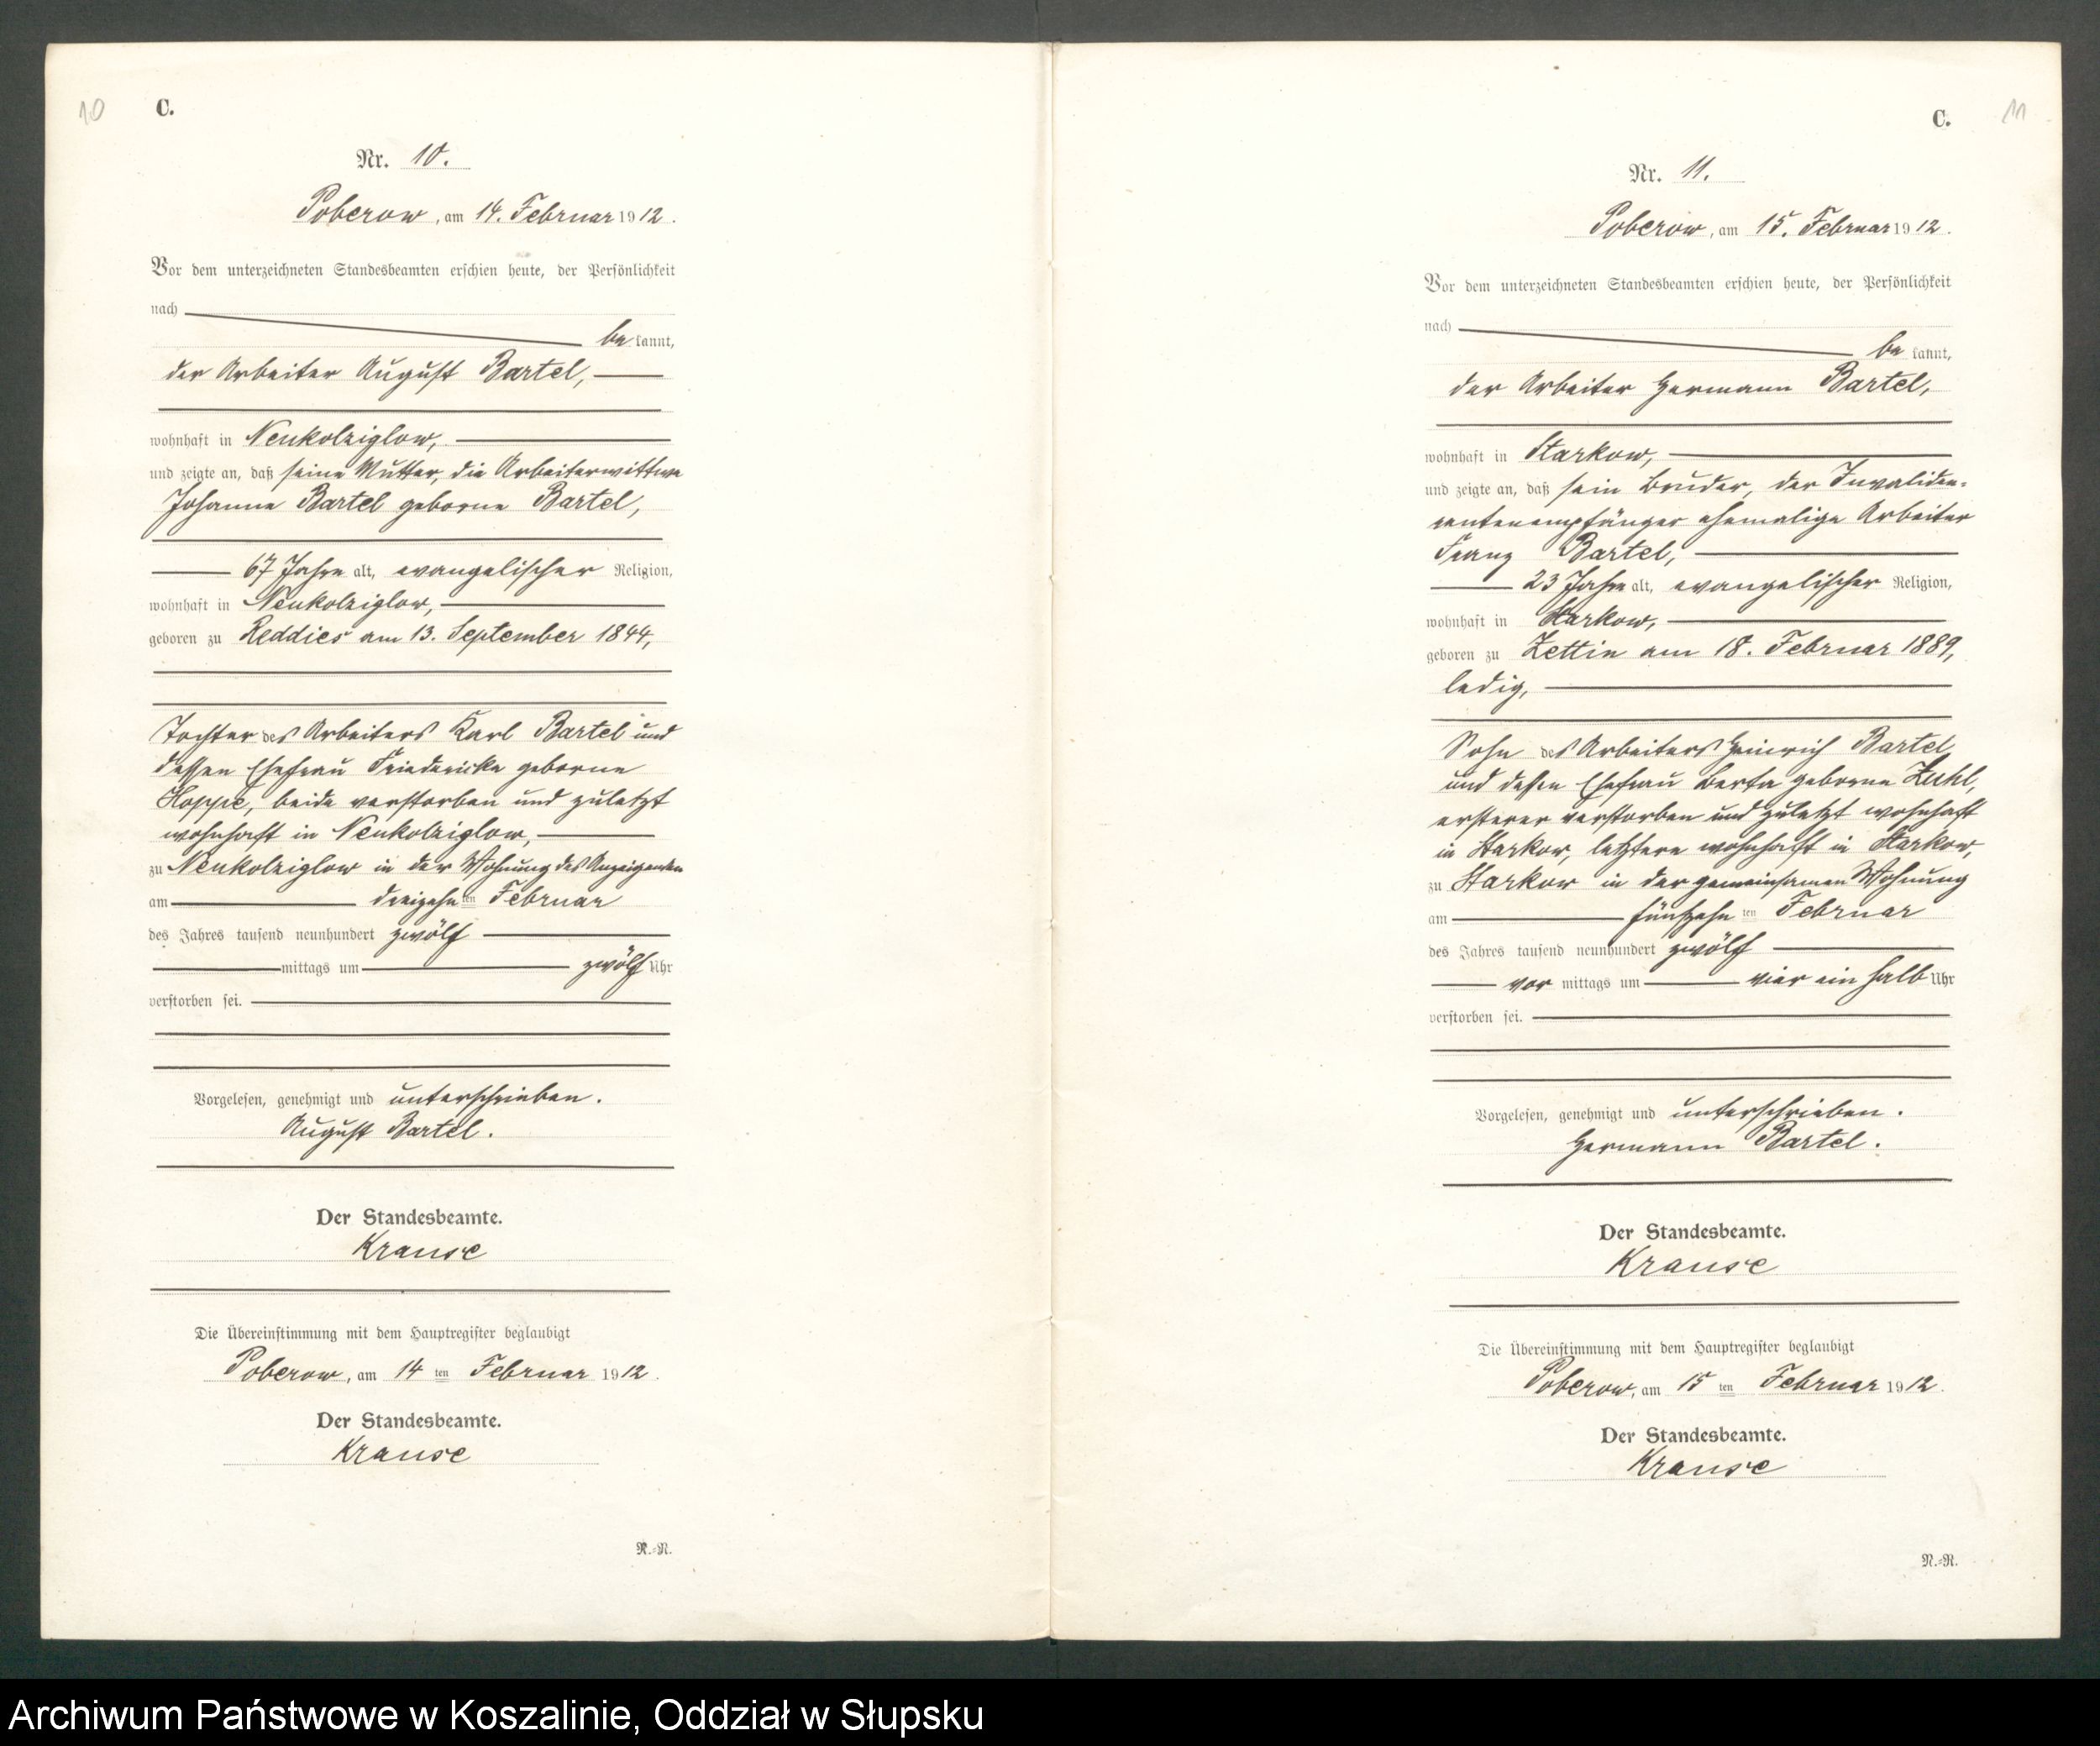 10
C.
Nr. 10.
Poberow, am 14. Februar 1912.
Vor dem unterzeichneten Standesbeamten erschien heute, der Persönlichkeit
nach
be kannt,
der Arbeiter August Bartel,
wohnhaft in Neukolziglow,
und zeigte an, daß seine Mutter, die Arbeiterwittwe
Johanne Bartel geborne Bartel,
67 Jahre alt, evangelischer Religion,
wohnhaft in Neukolziglow,
geboren zu Reddies am 13. September 1844,
Tochter des Arbeiters Karl Bartel und
dessen Ehefrau Friedericke geborne
Hoppe, beide verstorben und zuletzt
wohnhaft in Neukolziglow,
zu Neukolziglow in der Wohnung des Anzeigenden
am dreizehn ten Februar
des Jahres tausend neunhundert zwölf
mittags um zwölf Uhr
verstorben sei.
Vorgelesen, genehmigt und unterschrieben.
August Bartel.
Der Standesbeamte.
Krause
Die Übereinstimmung mit dem Hauptregister beglaubigt
Poberow, am 14 ten Februar 1912.
Der Standesbeamte.
Krause
R.-N.
11
C.
Nr. 11.
Poberow, am 15. Februar 1912.
Vor dem unterzeichneten Standesbeamten erschien heute, der Persönlichkeit
nach
be kannt,
der Arbeiter Hermann Bartel,
wohnhaft in Starkow,
und zeigte an, daß sein Bruder, der Invaliden-
rentenempfänger ehemalige Arbeiter
Franz Bartel,
23 Jahre alt, evangelischer Religion,
wohnhaft in Starkow,
geboren zu Zettin am 18. Februar 1889,
ledig,
Sohn des Arbeiters Heinrich Bartel
und dessen Ehefrau Berta geborne
ersterer verstorben und zuletzt wohnhaft
in Starkow, letztere wohnhaft in Starkow,
zu Starkow in der gemeinsamen Wohnung
am fünfzehn ten Februar
des Jahres tausend neunhundert zwölf
vor mittags um vier ein halb Uhr
verstorben sei.
Vorgelesen, genehmigt und unterschrieben.
Hermann Bartel.
Der Standesbeamte.
Krause
Die Übereinstimmung mit dem Hauptregister beglaubigt
Poberow, am 15 ten Februar 1912.
Der Standesbeamte.
Krause
N.-R.
Archiwum Państwowe w Koszalinie, Oddział w Słupsku